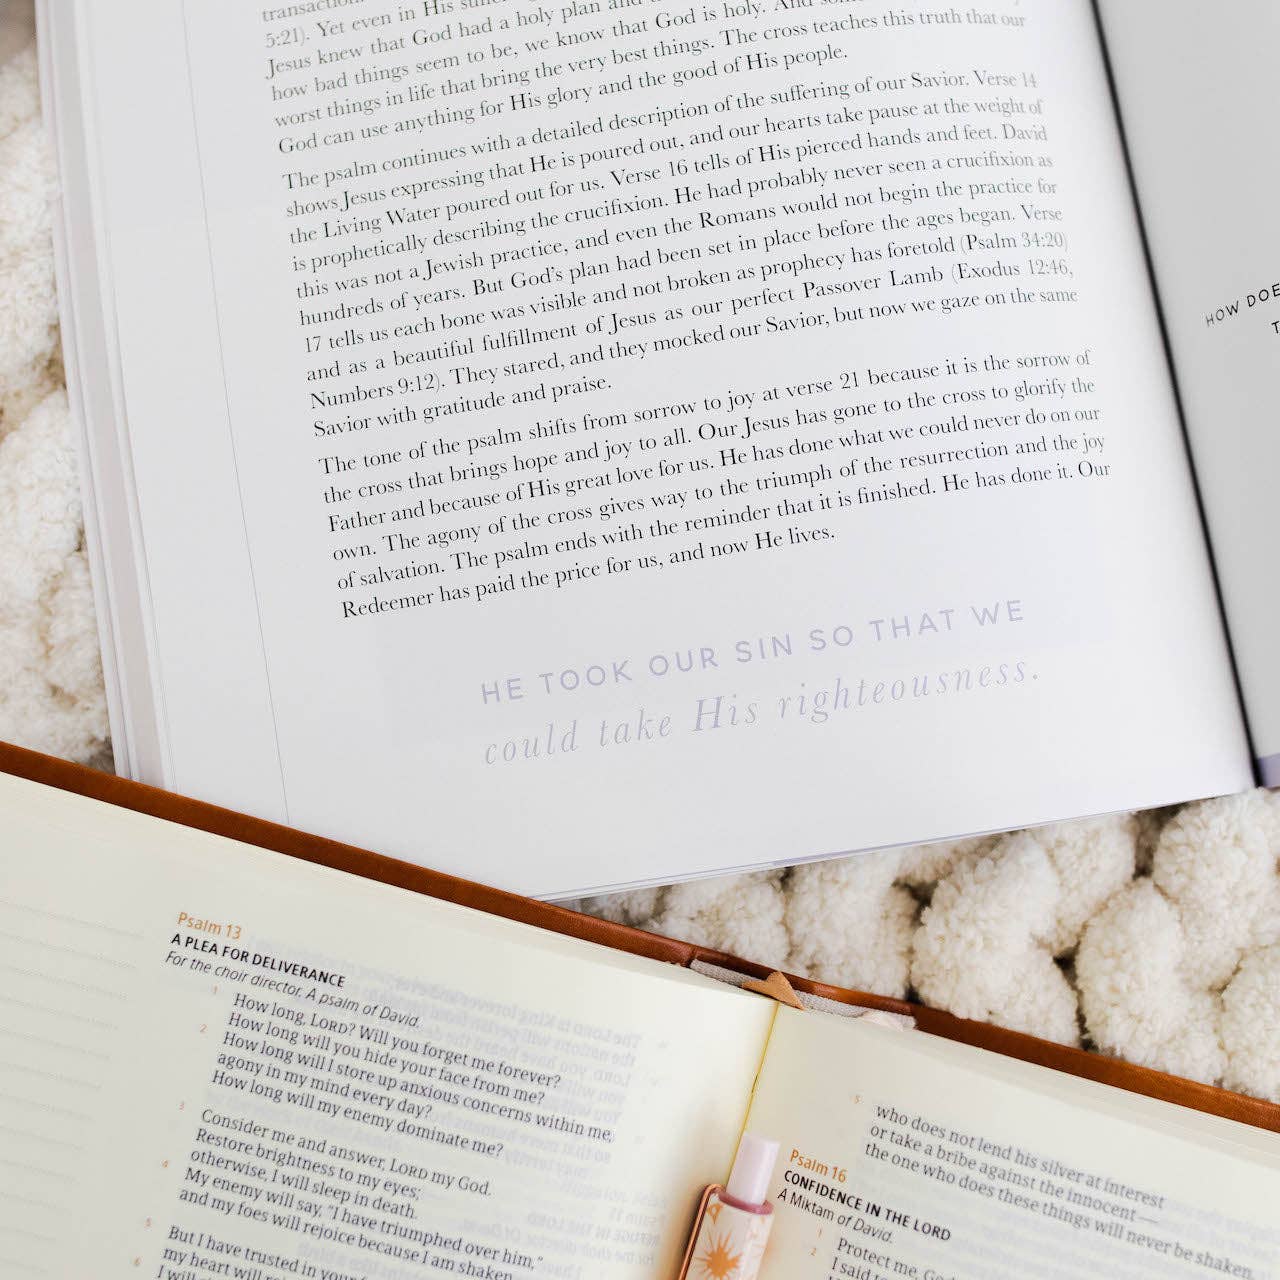 transaction
5:21). Yet even in His
Jesus knew that God had a holy plan and
how bad things seem to be, we know that God is holy. And
worst things in life that bring the very best things. The cross teaches this truth that our
God can use anything for His glory and the good of His people.
The psalm continues with a detailed description of the suffering of our Savior. Verse 14
shows Jesus expressing that He is poured out, and our hearts take pause at the weight of
the Living Water poured out for us. Verse 16 tells of His pierced hands and feet. David
is prophetically describing the crucifixion. He had probably never seen a crucifixion as
this was not a Jewish practice, and even the Romans would not begin the practice for
hundreds of years. But God's plan had been set in place before the ages began. Verse
17 tells us each bone was visible and not broken as prophecy has foretold (Psalm 34:20)
and as a beautiful fulfillment of Jesus as our perfect Passover Lamb (Exodus 12:46,
Numbers 9:12). They stared, and they mocked our Savior, but now we gaze on the same
Savior with gratitude and praise.
The tone of the psalm shifts from sorrow to joy at verse 21 because it is the sorrow of
the cross that brings hope and joy to all. Our Jesus has gone to the cross to glorify the
Father and because of His great love for us. He has done what we could never do on our
own. The agony of the cross gives way to the triumph of the resurrection and the joy
of salvation. The psalm ends with the reminder that it is finished. He has done it. Our
Redeemer has paid the price for us, and now He lives.
HE TOOK OUR SIN SO THAT WE
could take His righteousness.
HOW DOE
T
Psalm 13
A PLEA FOR DELIVERANCE
For the choir director. A psalm of David.
1 How long, LORD? Will you forget me forever?
How long will you hide your face from me?
2 How long will I store up anxious concerns within me,
agony in my mind every day?
How long will my enemy dominate me?
3 Consider me and answer, LORD my God.
Restore brightness to my eyes;
otherwise, I will sleep in death.
4 My enemy will say, "I have triumphed over him,"
and my foes will rejoice because I am shaken.
5 But I have trusted in your
my heart will
6 I will
5 who does not lend his silver at interest
or take a bribe against the innocent—
the one who does these things will never be shaken.
Psalm 16
CONFIDENCE IN THE LORD
A Miktam of David.
1 Protect me, God
2 I said